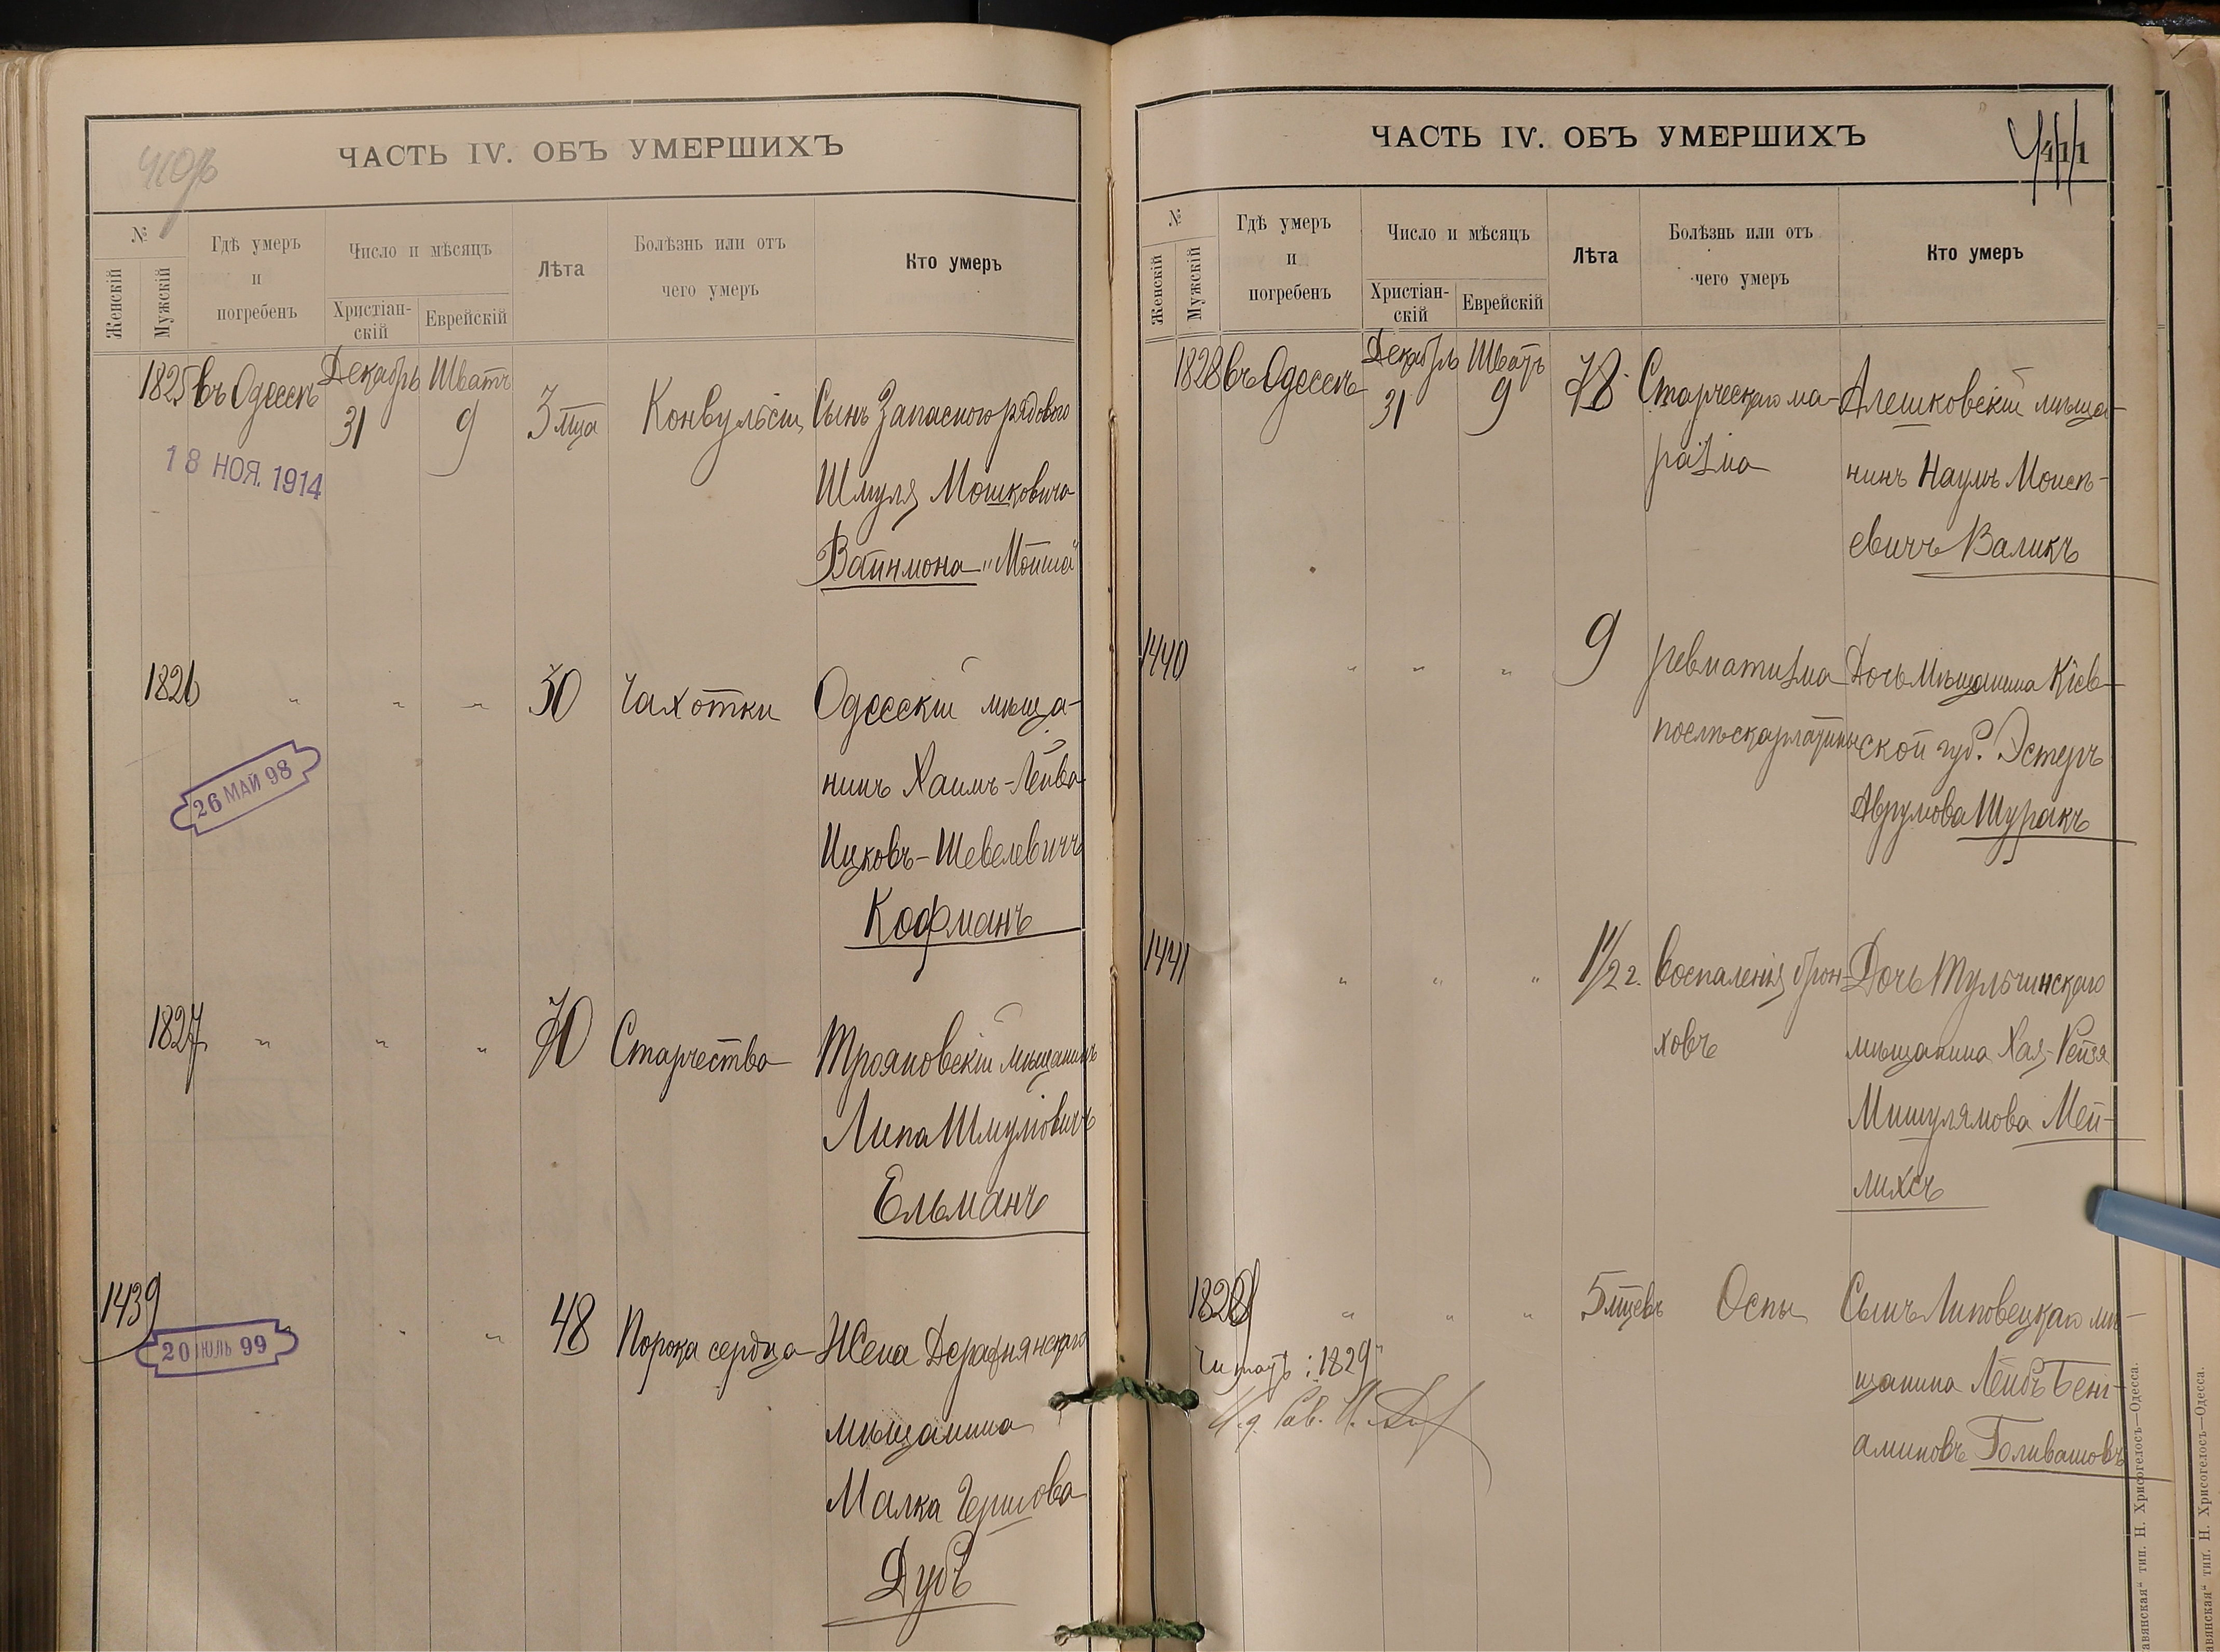 ЧАСТЬ IV. ОБЪ УМЕРШИХЪ
№
Женскій
Мужскій
Гдѣ умеръ
и
погребенъ
Число и мѣсяцъ
Христіан-
скій
Еврейскій
Лѣта
Болѣзнь или отъ
чего умеръ
Кто умеръ
1825 въ Одессѣ Декабрь 31 Шватъ 9 3 мца Конвульсіи Сынъ Запасного рядового
Шмуля Мошковича
Вайнмона „Мойша"
18 НОЯ. 1914
1826 " " " 30 Чахотки Одесскій мѣща-
нинъ Хаимъ-Лейба
Ицковъ-Шевелевичъ
Кофманъ
26 МАЙ 98
1827 " " " 70 Старчества Трояновскій мѣщанинъ
Липа Шмуловичъ
Ельманъ
1439 " " 48 Порока сердца Жена Деражнянскаго
мѣщанина
Малка Гершова
Дубъ
20 ІЮЛЬ 99
ЧАСТЬ IV. ОБЪ УМЕРШИХЪ
411
№
Женскій
Мужскій
Гдѣ умеръ
и
погребенъ
Число и мѣсяцъ
Христіан-
скій
Еврейскій
Лѣта
Болѣзнь или отъ
чего умеръ
Кто умеръ
1828 въ Одессѣ Декабрь 31 Шватъ 9 78 Старческаго ма- Алешковскій мѣща-
разма нинъ Наумъ Моисѣ-
евичъ Валикъ
1440 " " " 9 ревматизма Дочь Мѣщанина Кіев-
послѣ скарлатины ской губ. Эстеръ
Аврумова Шуракъ
1441 " " " 1 1/2 г. воспаленія брон- Дочь Тульчинскаго
ховъ мѣщанина Хая-Рейзя
Мишулямова Мей-
лихсъ
1829 " " " 5 мцевъ Оспы Сынъ Липовецкаго мѣ-
щанина Лейбъ Бені-
аминовъ Голивашовъ
Читать: „1829"
И. д. Рав.
тип. Н. Хрисогелосъ—Одесса.
тип. Н. Хрисогелосъ—Одесса.